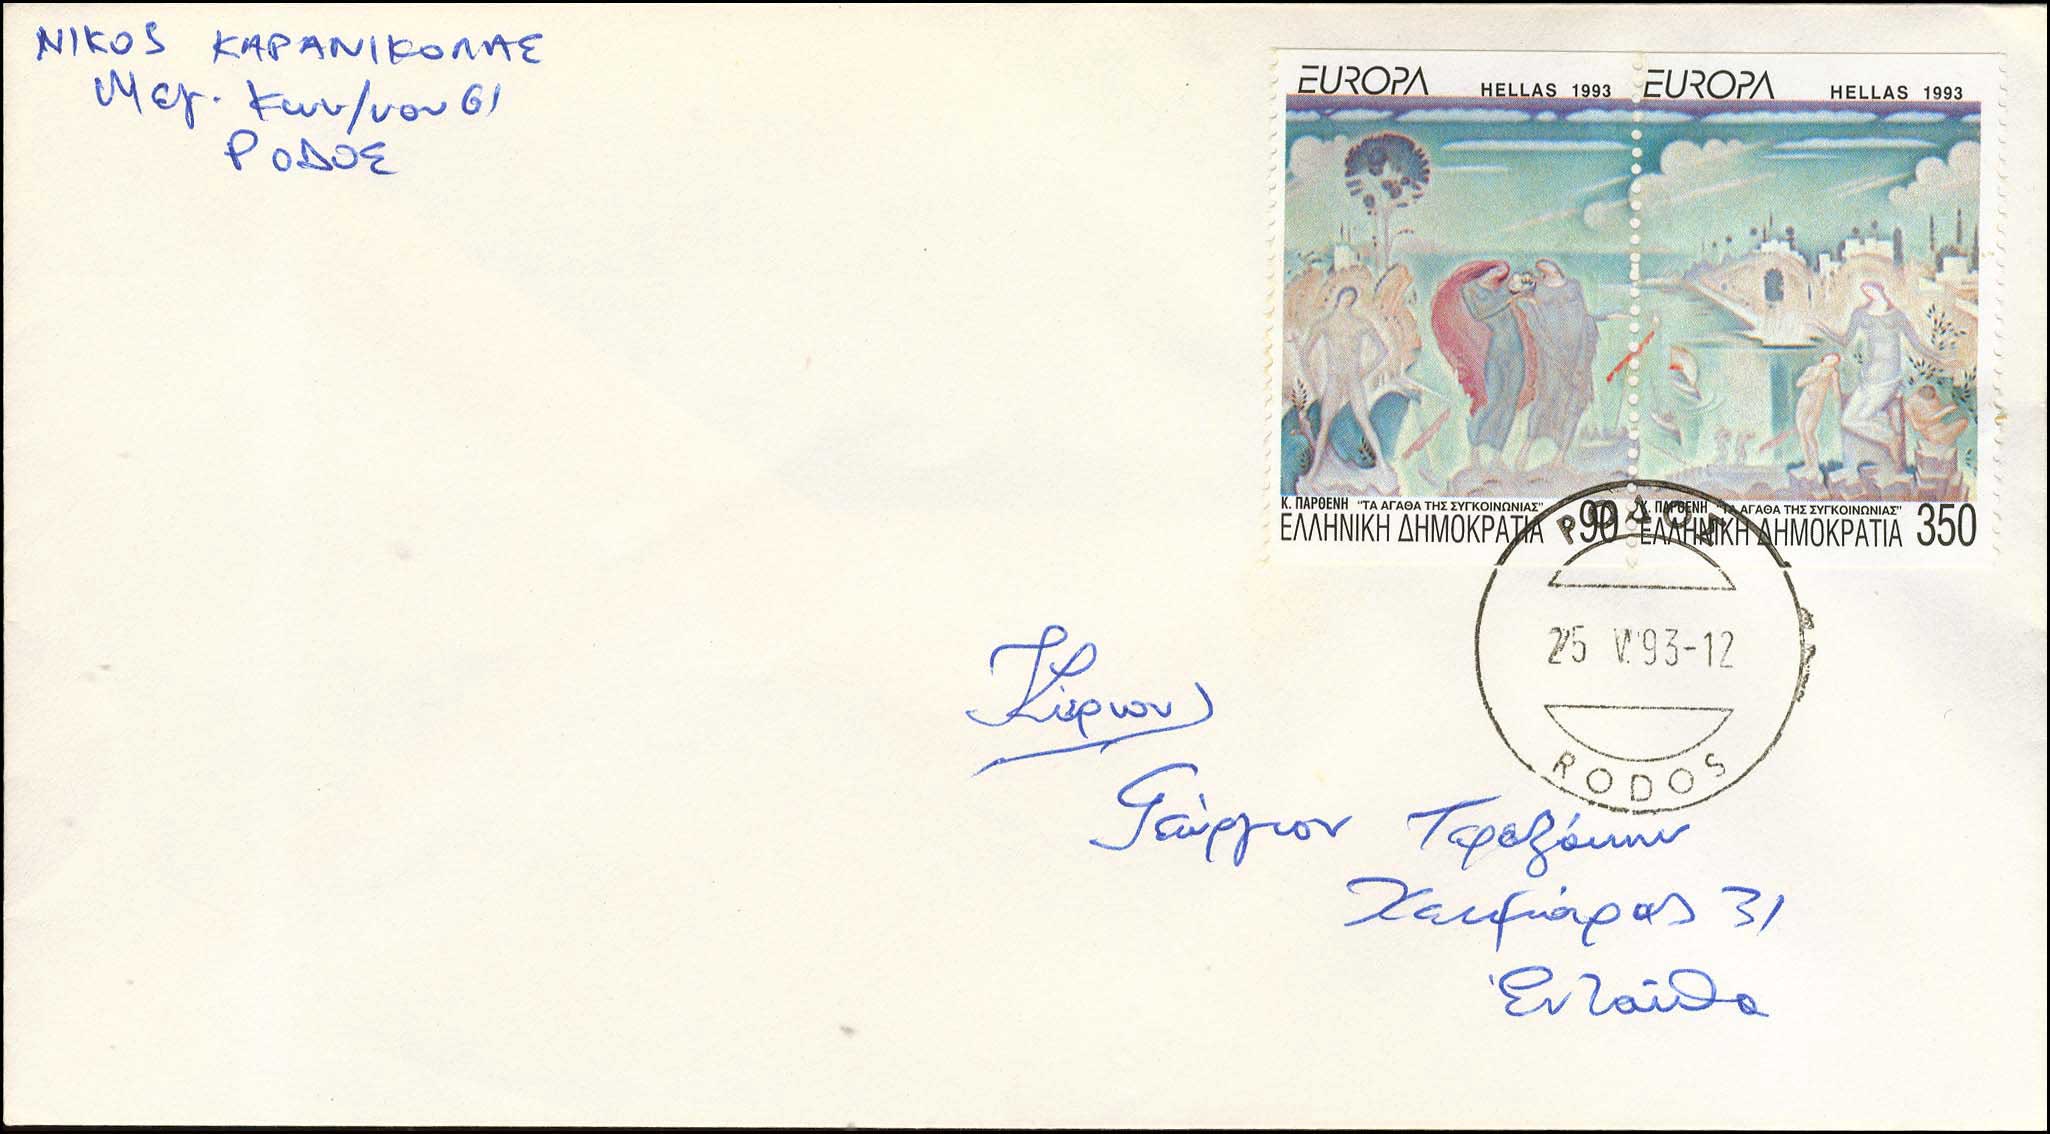 ΝΙΚΟΣ ΚΑΡΑΝΙΚΟΛΑΣ
Μεγ. Κων/νου 61
ΡΟΔΟΣ
EUROPA HELLAS 1993
EUROPA HELLAS 1993
Κ. ΠΑΡΘΕΝΗ "ΤΑ ΑΓΑΘΑ ΤΗΣ ΣΥΓΚΟΙΝΩΝΙΑΣ"
ΕΛΛΗΝΙΚΗ ΔΗΜΟΚΡΑΤΙΑ 90
Κ. ΠΑΡΘΕΝΗ "ΤΑ ΑΓΑΘΑ ΤΗΣ ΣΥΓΚΟΙΝΩΝΙΑΣ"
ΕΛΛΗΝΙΚΗ ΔΗΜΟΚΡΑΤΙΑ 350
ΡΟΔΟΣ
25 V 93-12
RODOS
Κύριον
Γεώργιον
31
Ἐνταῦθα